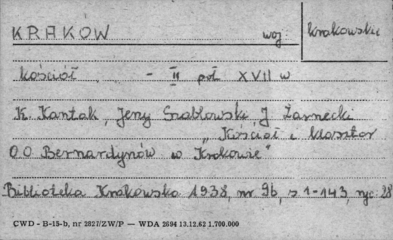 KRAKÓW woj. krakowskie
kościół - II poł XVII w
K. Kantak, Jerzy Szablowski, J. Żarnecki
"Kościół i klasztor
O.O Bernardynów w Krakowie"
Biblioteka Krakowska 1938, nr 96, s 1-143, ryc. 28
CWD - B-15-b, nr 2827/ZW/P — WDA 2694 13.12.62 1.700.000